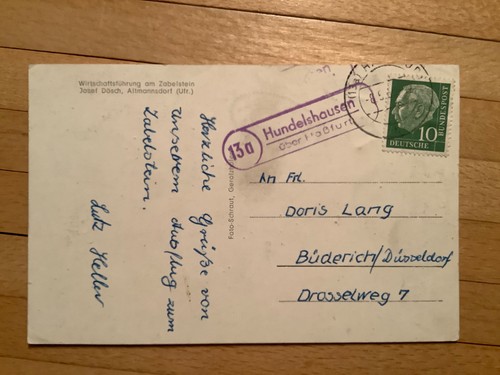 Wirtschaftsführung am Zabelstein
Josef Dösch, Altmannsdorf (Ufr.)
Herzliche Grüße von
unserem Ausflug zum
Zabelstein.
Lutz Heller
Foto-Schraut,
13a
Hundelshausen
über Haßfurt
10
DEUTSCHE
BUNDESPOST
An Frl.
Doris Lang
Büderich/Düsseldorf
Drosselweg 7